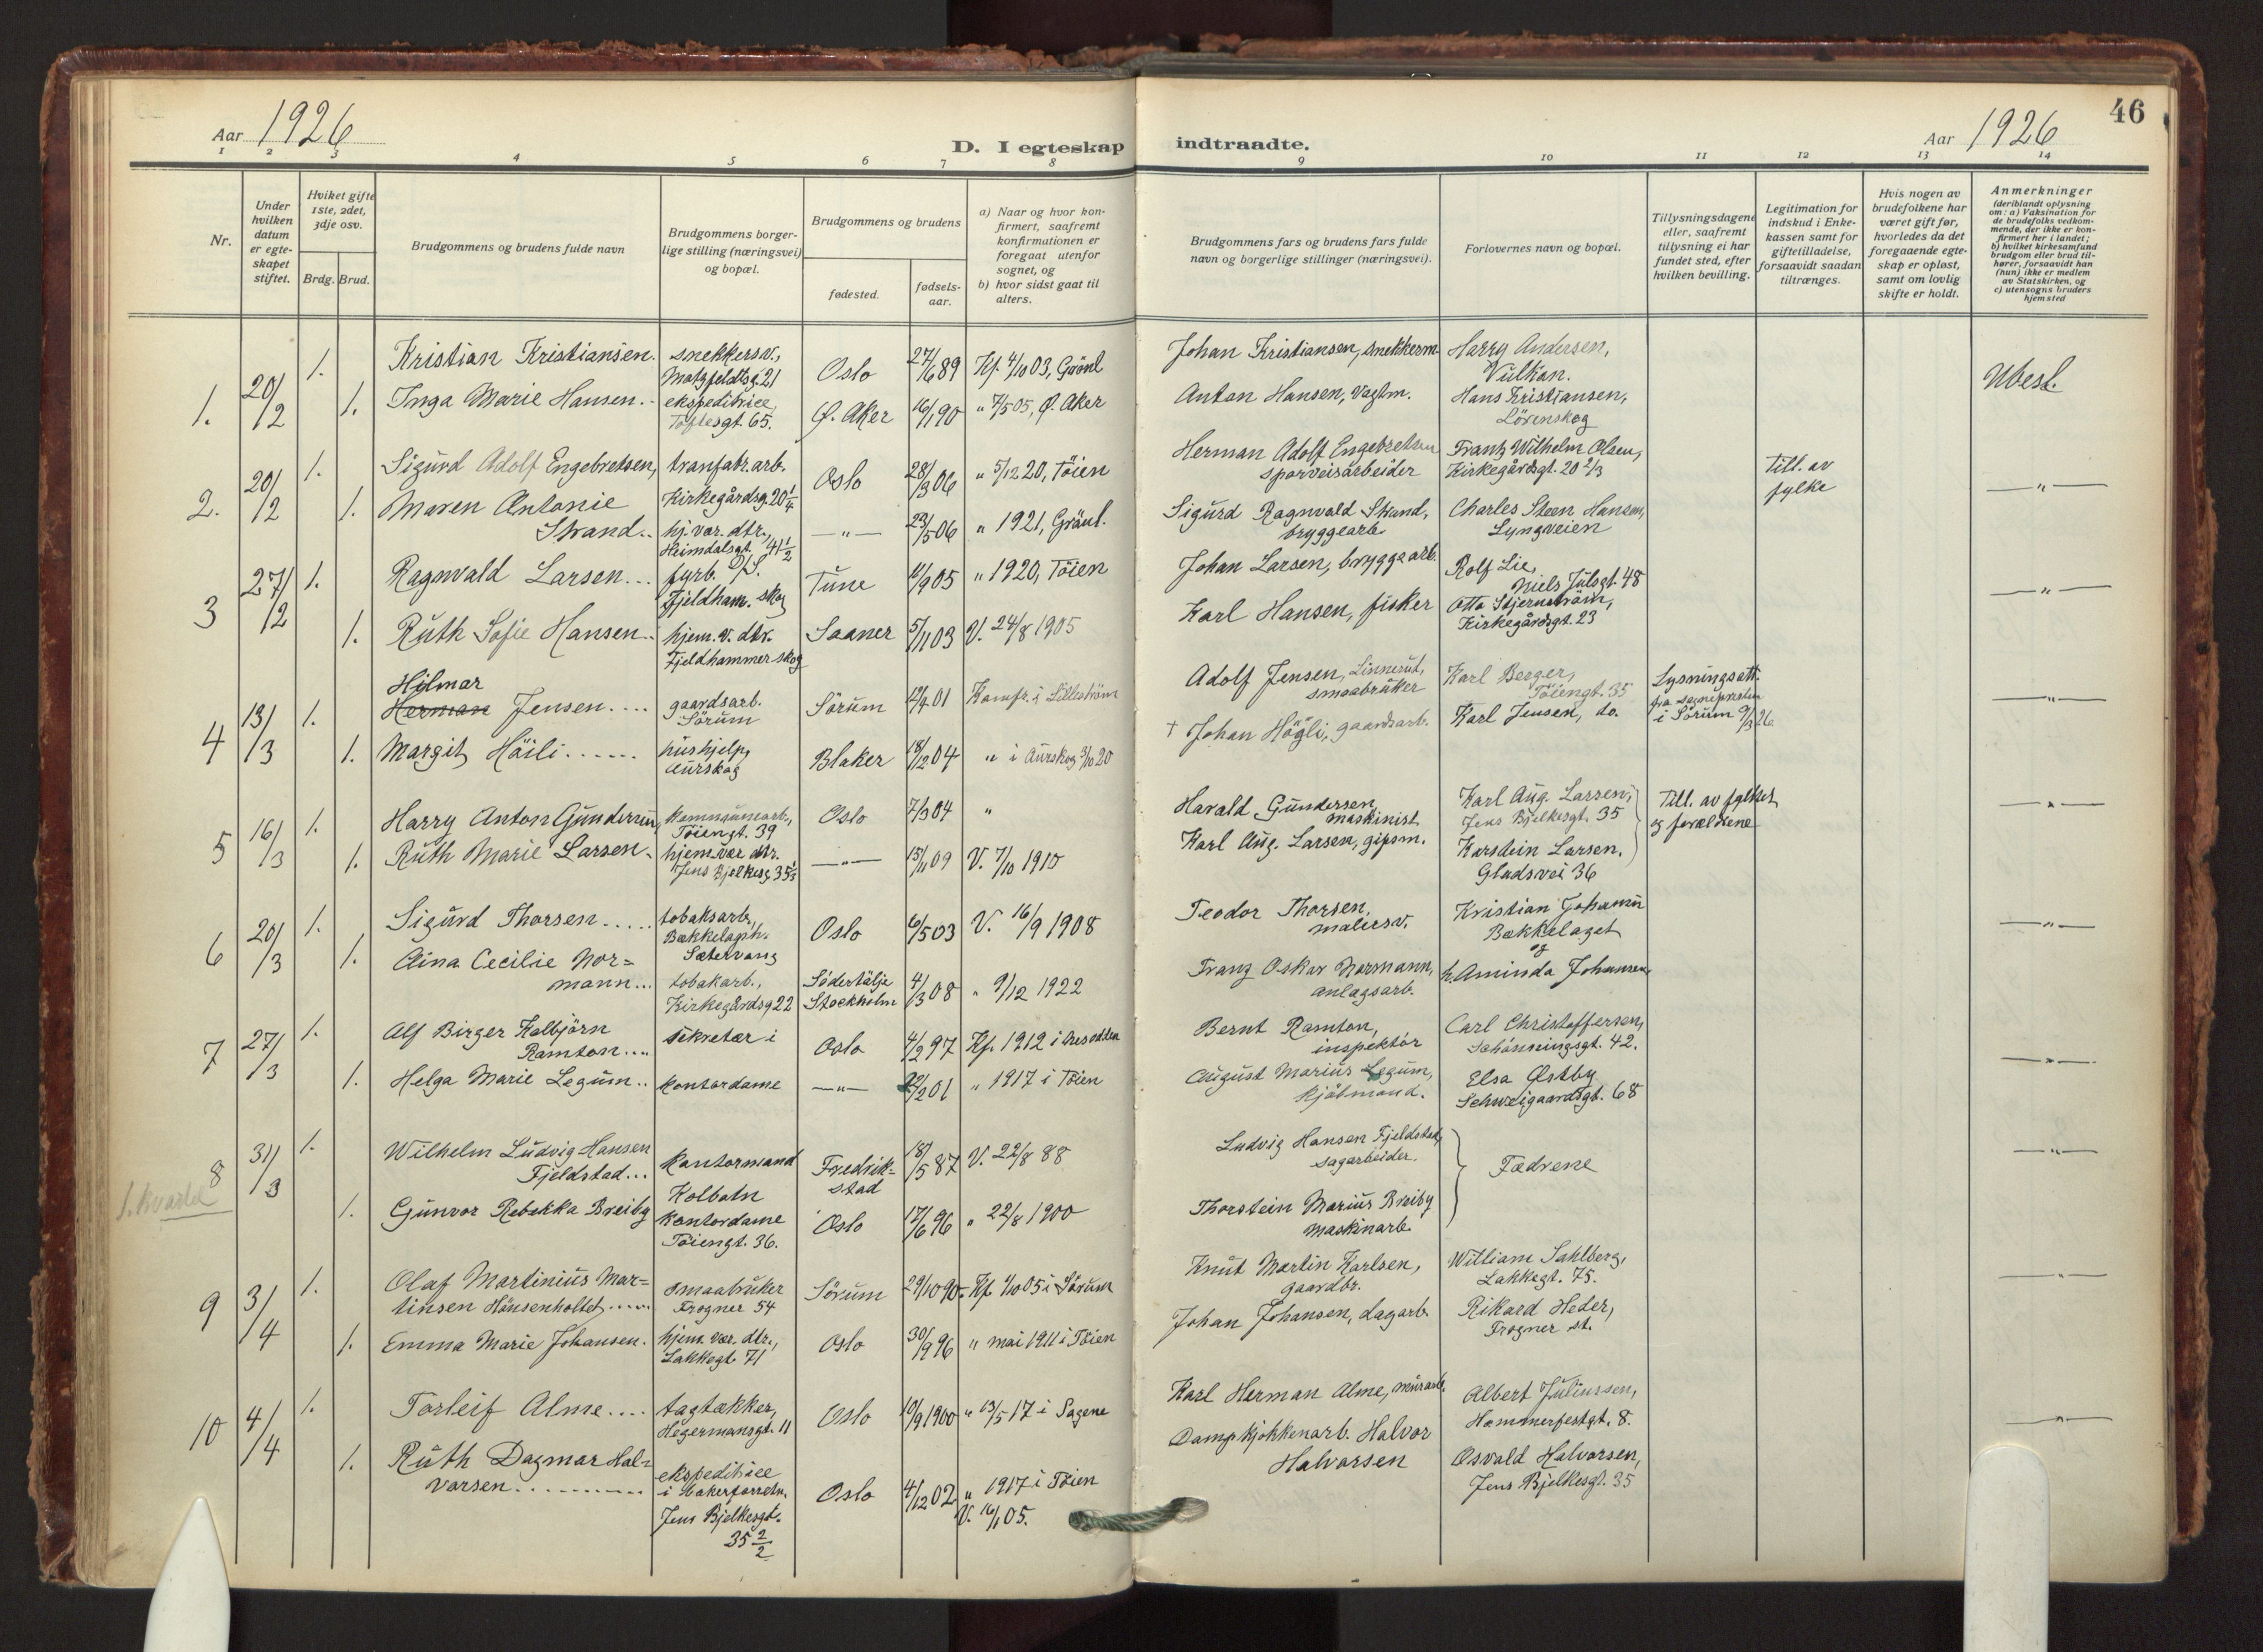 46
Aar 1926
D. I egteskap indtraadte.
Aar 1926
1 2 3 4 5 6 7 8 9 10 11 12 13 14
Nr.
Under hvilken datum er egteskapet stiftet.
Hviket gifte 1ste, 2det, 3dje osv.
Brdg. Brud.
Brudgommens og brudens fulde navn
Brudgommens borgerlige stilling (næringsvei) og bopæl.
Brudgommens og brudens
fødested.
fødselsaar.
a) Naar og hvor konfirmert, saafremt konfirmationen er foregaat utenfor sognet, og
b) hvor sidst gaat til alters.
Brudgommens fars og brudens fars fulde navn og borgerlige stillinger (næringsvei).
Forlovernes navn og bopæl.
Tillysningsdagene eller, saafremt tillysning ei har fundet sted, efter hvilken bevilling.
Legitimation for indskud i Enkekassen samt for giftetilladelse, forsaavidt saadan tiltrænges.
Hvis nogen av brudefolkene har været gift før, hvorledes da det foregaaende egteskap er opløst, samt om lovlig skifte er holdt.
Anmerkninger (deriblandt oplysning om: a) Vaksination for de brudefolks vedkommende, der ikke er konfirmert her i landet; b) hvilket kirkesamfund brudgom eller brud tilhører, forsaavidt han (hun) ikke er medlem av Statskirken, og c) utensogns bruders hjemsted
1. 20/2 1. Kristian Kristiansen. snekkersv., Motzfeldtsg. 21 Oslo 27/6 89 Kf. 4/10 03, Grönl. Johan Kristiansen, snekkerm. Harry Andersen, Vulkan. Ubesl.
1. Inga Marie Hansen. ekspeditrice Toftesgt. 65. Ø. Aker 16/1 90 " 7/5 05, Ø. Aker Anton Hansen, vagtm. Hans Kristiansen, Lörenskog
2. 20/2 1. Sigurd Adolf Engebretsen, tranfabr. arb. Kirkegårdsg. 20 1/4 Oslo 28/3 06 " 5/12 20, Töien Herman Adolf Engebretsen sporveisarbeider Frantz Wilhelm Olsen, Kirkegårdsgt. 20 2/3 Till. av fylke — " —
1. Maren Antonie Strand.. hj. vær. dtr., Heimdalsgt. 41 1/2 — " — 23/5 06 " 1921, Grönl. Sigurd Ragnvald Strand, bryggearb. Charles Steen Hansen, Lyngveien
3 27/2 1. Ragnvald Larsen... fyrb. D/S. Fjeldham. skog Tune 11/9 05 " 1920, Töien Johan Larsen, bryggearb. Rolf Lie, Niels Julsgt. 48 — " —
1. Ruth Sofie Hansen.. hjem. v. dtr. Fjeldhammer skog Saaner 5/11 03 V. 24/8 1905 Karl Hansen, fisker Otto Stjernström, Kirkegårdsgt. 23
4 13/3 1. Hilmar Herman Jensen.... gaardsarb. Sörum Sörum 12/9 01 Konfr. i Lilleström Adolf Jensen, Linnerut, smaabruker Karl Berger, Töiengt. 35 Lysningsatt. fra sognepresten i Sörum 9/3 26 — " —
1. Margit Höili...... hushjelp, Aurskog Blaker 18/12 04 " i Aurskog 3/10 20 † Johan Högli, gaardsarb. Karl Jensen, do.
5 16/3 1. Harry Anton Gundersen, kommunearb., Töiengt. 39 Oslo 7/3 04 " Harald Gundersen, maskinist Karl Aug. Larsen, Jens Bjelkesgt. 35 Till. av fylket og forældrene — " —
1. Ruth Marie Larsen. hjem. vær. dtr. Jens Bjelkesg. 35 1/3 — " — 15/11 09 V. 7/10 1910 Karl Aug. Larsen, gipsm. Karstein Larsen. Gladsvei 36
6 20/3 1. Sigurd Thorsen..... tobaksarb., Bækkelagsh. Sætervang Oslo 6/5 03 V. 16/9 1908 Teodor Thorsen, malersv. Kristian Johansen Bækkelaget og — " —
1. Aina Cecilie Normann... tobakarb., Kirkegårdsg. 22 Södertälje Stockholm 4/3 08 " 9/12 1922 Franz Oskar Normann, anlagsarb. h. Aminda Johansen
7 27/3 1. Alf Birger Kolbjörn Ramton.... sekretær i Oslo 4/2 97 Kf. 1912 i Ramton, Bernt Ramton, inspektör Carl Christoffersen, Schönningsgt. 42. — " —
1. Helga Marie Legum.. kontordame — " — 22/2 01 " 1917 i Töien August Marius Legum, kjöbmand. Elsa Østby Schweigaardsgt. 68
8 31/3 1. Wilhelm Ludvig Hansen Fjeldstad... kontormand Kolbotn Fredrikstad 18/5 87 V. 22/8 88 Ludvig Hansen Fjeldstad, sagarbeider. Fædrene — " —
1. kvartal
1. Gunvor Rebekka Breiby kontordame Töiengt. 36. Oslo 17/6 96 " 22/8 1900 Thorstein Marius Breiby maskinarb.
9 3/4 1. Olaf Martinius Martinsen Hönsenholtet...... smaabruker Frogner 54 Sörum 29/10 90 Kf. 1/10 05 i Sörum Knut Martin Karlsen, gaardbr. William Sahlberg, Lakkegt. 75. — " —
1. Emma Marie Johansen. hjem. vær. dtr., Lakkegt. 71 Oslo 30/9 96 " mai 1911 i Töien Johan Johansen, dagarb. Rikard Heder, Frogner st.
10 4/4 1. Torleif Alme.... tagtækker, Hegermansgt. 11 Oslo 10/9 1900 " 13/5 17 i Sagene Karl Herman Alme, murarb. Albert Juliussen, Hammerfestgt. 8. — " —
1. Ruth Dagmar Halvorsen.......... ekspeditrice i bakerforretn. Jens Bjelkesgt. 35 2/2 Oslo 4/12 02 " 1917 i Töien V. 16/1 05. Dampkjökkenarb. Halvor Halvorsen Osvald Halvorsen, Jens Bjelkesgt. 35